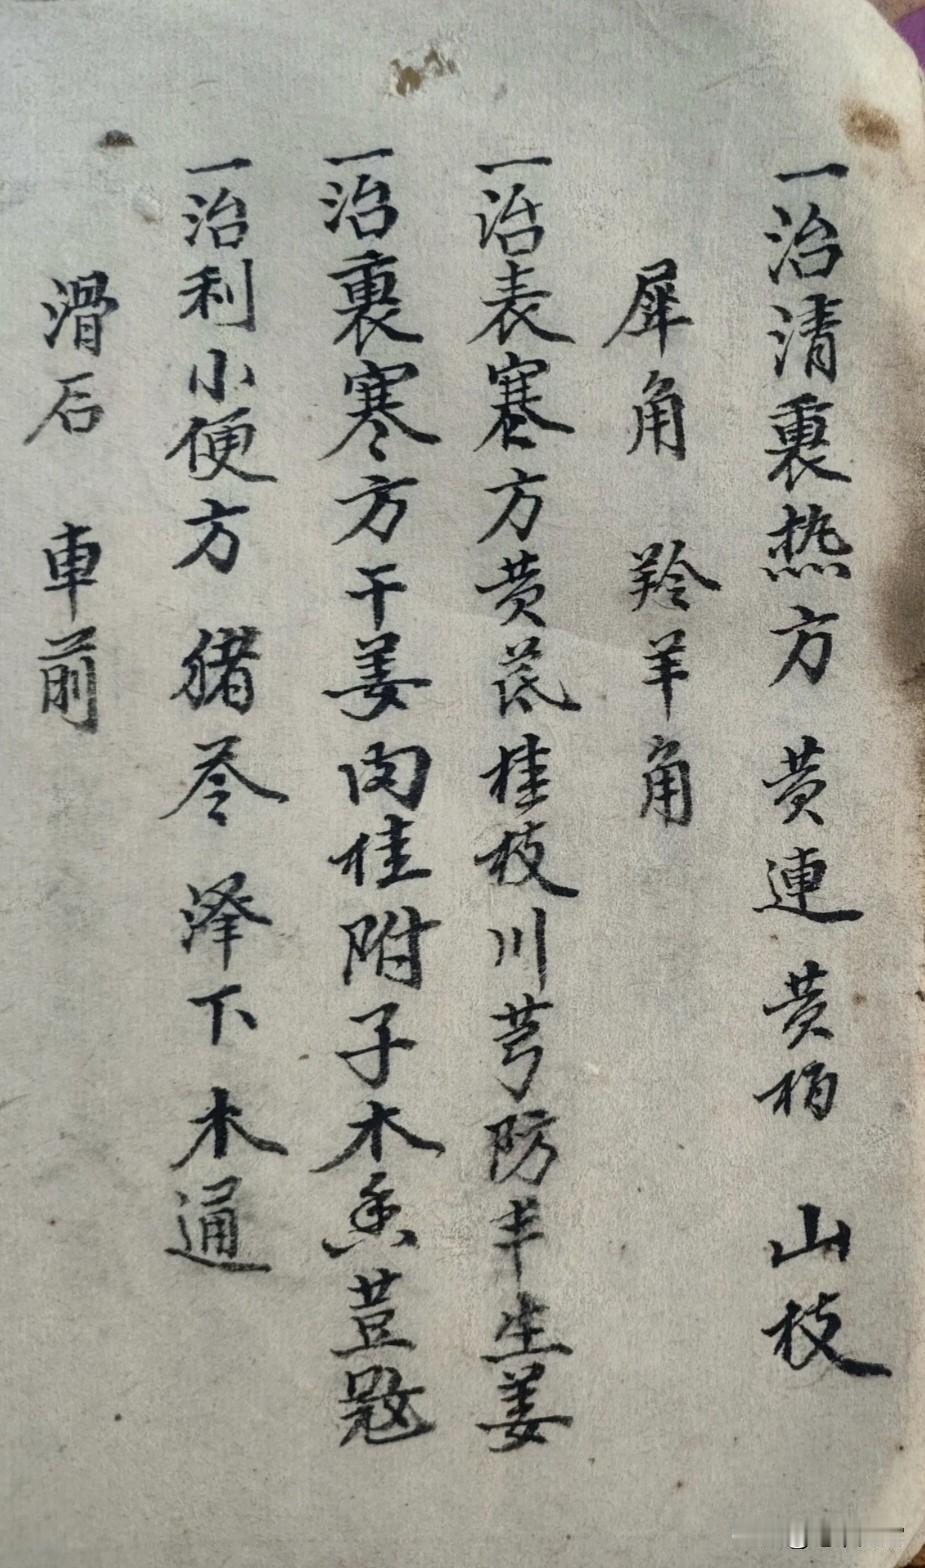 一治清裏热方 黄連 黄柏 山枝
犀角 羚羊角
一治表寒方黄芪桂枝川芎防丰生姜
一治裏寒方干姜肉桂附子木香荳蔻
一治利小便方 猪苓 泽下木通
滑石 車前